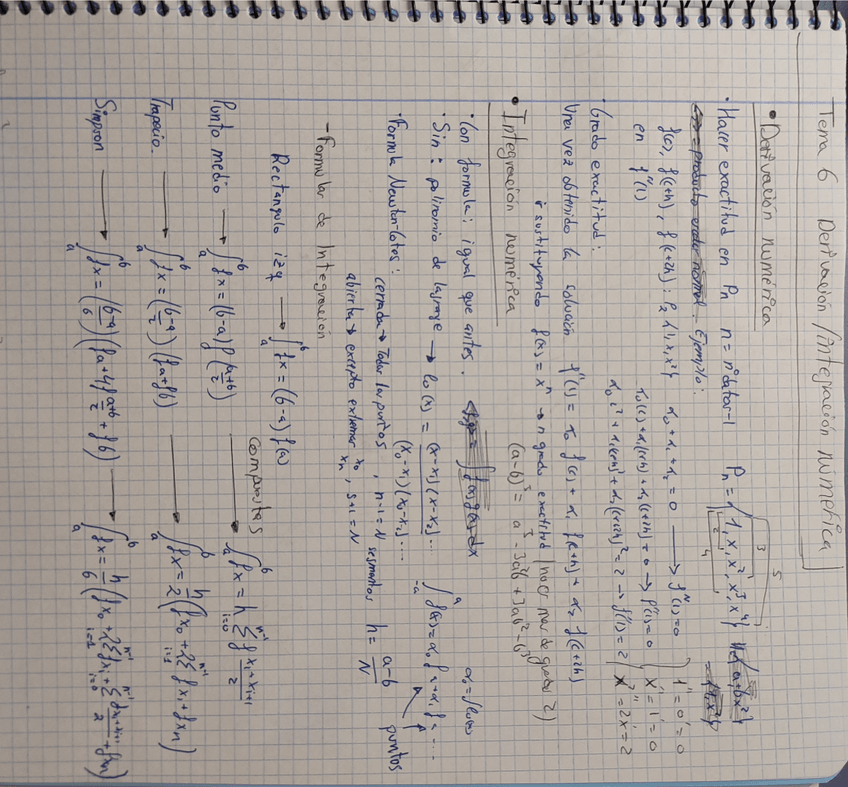 Tema 6 Derivación / integración numérica
• Derivación numérica
· Hacer exactitud en Pn n = nº datos-1 Pn = {1, x, x², x³, x⁴}
2 4 3 5
Ejemplo:
f(c), f(c+h), f(c+2h) : P2 {1, x, x²}
en f''(c)
α0 + α1 + α2 = 0 → f''(1) = 0
α0 c² + α1(c+h)² + α2(c+2h)² = 2 → f''(1) = 2
1'' = 0' = 0
x'' = 1' = 0
x²'' = 2x' = 2
· Grado exactitud:
Una vez obtenido la solución f''(c) = α0 f(c) + α1 f(c+h) + α2 f(c+2h)
ir sustituyendo f(x) = xⁿ → n grado exactitud (hacer mas de grado 2)
(a-b)³ = a³ - 3a²b + 3ab² - b³
• Integración numérica
· Con formula: igual que antes.
· Sin: polinomio de lagrange → l0(x) = (x-x1)(x-x2)... / (x0-x1)(x0-x2)...
· Formula Newton-Cotes:
cerrada → Todos los puntos, n-1 = N segmentos h = a-b / N
abierta → excepto extremos x0 xn, s+1 = N
puntos
- Formulas de Integración
Rectangulo izq → ∫ab fx = (b-a) f(a)
Compuestas
Punto medio → ∫ab fx = (b-a) f(a+b / 2) → ∫ab fx = h Σ i=0 n-1 f xi+xi+1 / 2
Trapecio. → ∫ab fx = (b-a / 2)(fa+fb) → ∫ab fx = h/2 (fx0 + 2Σ i=1 n-1 fxi + fxn)
Simpson → ∫ab fx = (b-a / 6)(fa + 4f a+b / 2 + fb) → ∫ab fx = h/6 (fx0 + 2Σ i=1 n-1 fxi + Σ i=0 n-1 fxi+xi+1 / 2 + fxn)